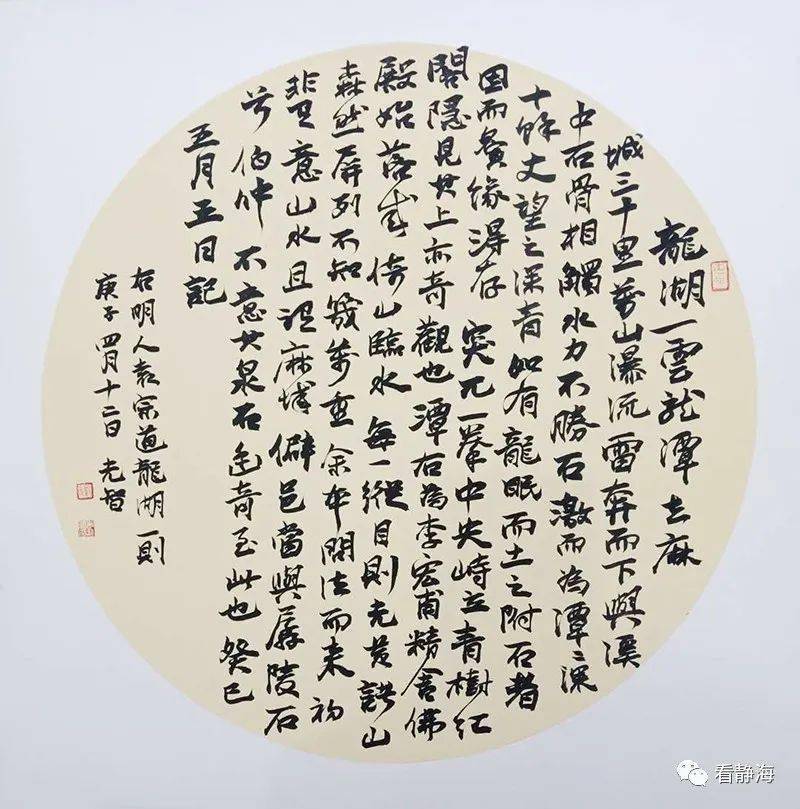 龍湖一雲龙潭去麻
城三十里萬山瀑流雷奔而下與溪
中石骨相觸水力不勝石激而為潭〻深
十餘丈望之深青如有龍眠而土之附石者
因而夤缘得存突兀一拳中央峙立青樹红
閣隐見其上亦奇觀也潭右為李宏甫精舍佛
殿始落成倚山臨水每一縱目則光黄諸山
森然屏列不知幾萬重余本問法而来初
非有意山水且謂麻城僻邑當與孱陵石
首伯仲不意其泉石奇至此也癸巳
五月五日記
右明人袁宗道龍湖一則
庚子四月十二日光智
看静海